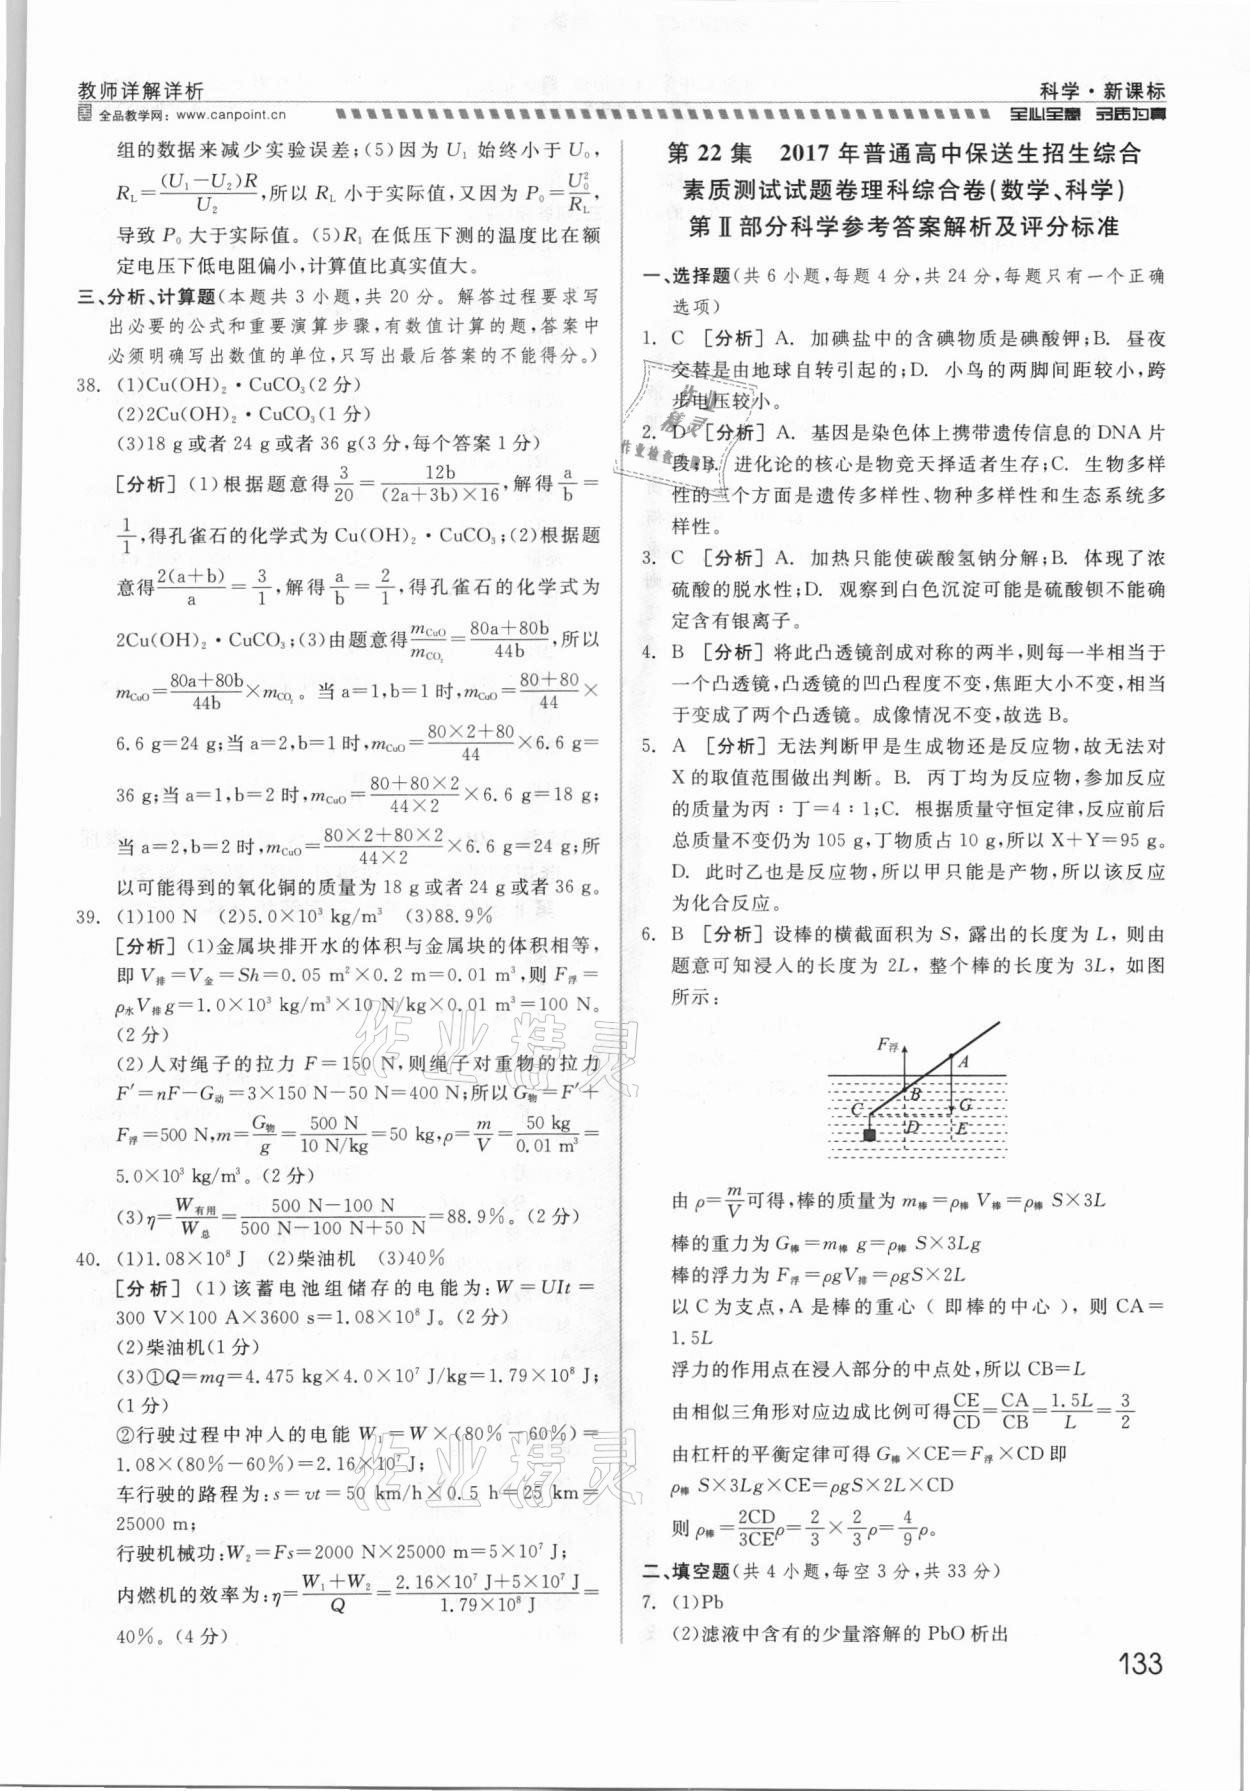 教师详解详析
全品教学网：www.canpoint.cn
科学·新课标
全心全意 品质为真
组的数据来减少实验误差；(5)因为 U₁ 始终小于 U₀，
R_L=(U₁-U₂)R/U₂，所以 R_L 小于实际值，又因为 P₀=U₀²/R_L，
导致 P₀ 大于实际值。(5)R₁ 在低压下测的温度比在额
定电压下低电阻偏小，计算值比真实值大。
三、分析、计算题(本题共 3 小题，共 20 分。解答过程要求写
出必要的公式和重要演算步骤，有数值计算的题，答案中
必须明确写出数值的单位，只写出最后答案的不能得分。)
38. (1)Cu(OH)₂·CuCO₃(2 分)
(2)2Cu(OH)₂·CuCO₃(1 分)
(3)18 g 或者 24 g 或者 36 g(3 分，每个答案 1 分)
［分析］(1)根据题意得 3/20=12b/((2a+3b)×16)，解得 a/b=
1/1，得孔雀石的化学式为 Cu(OH)₂·CuCO₃；(2)根据题
意得 2(a+b)/a=3/1，解得 a/b=2/1，得孔雀石的化学式为
2Cu(OH)₂·CuCO₃；(3)由题意得 m_CuO/m_CO₂=(80a+80b)/44b，所以
m_CuO=(80a+80b)/44b×m_CO₂。当 a=1，b=1 时，m_CuO=(80+80)/44×
6.6 g=24 g；当 a=2，b=1 时，m_CuO=(80×2+80)/44×6.6 g=
36 g；当 a=1，b=2 时，m_CuO=(80+80×2)/(44×2)×6.6 g=18 g；
当 a=2，b=2 时，m_CuO=(80×2+80×2)/(44×2)×6.6 g=24 g；所
以可能得到的氧化铜的质量为 18 g 或者 24 g 或者 36 g。
39. (1)100 N (2)5.0×10³ kg/m³ (3)88.9%
［分析］(1)金属块排开水的体积与金属块的体积相等，
即 V排=V金=Sh=0.05 m²×0.2 m=0.01 m³，则 F浮=
ρ水V排g=1.0×10³ kg/m³×10 N/kg×0.01 m³=100 N。
(2 分)
(2)人对绳子的拉力 F=150 N，则绳子对重物的拉力
F′=nF-G动=3×150 N-50 N=400 N；所以 G物=F′+
F浮=500 N，m=G物/g=500 N/(10 N/kg)=50 kg，ρ=m/V=50 kg/0.01 m³=
5.0×10³ kg/m³。(2 分)
(3)η=W有用/W总=(500 N-100 N)/(500 N-100 N+50 N)=88.9%。(2 分)
40. (1)1.08×10⁸ J (2)柴油机 (3)40%
［分析］(1)该蓄电池组储存的电能为：W=UIt=
300 V×100 A×3600 s=1.08×10⁸ J。(2 分)
(2)柴油机(1 分)
(3)①Q=mq=4.475 kg×4.0×10⁷ J/kg=1.79×10⁸ J；
(1 分)
②行驶过程中冲入的电能 W₁=W×(80%-60%)=
1.08×(80%-60%)=2.16×10⁷ J；
车行驶的路程为：s=vt=50 km/h×0.5 h=25 km=
25000 m；
行驶机械功：W₂=Fs=2000 N×25000 m=5×10⁷ J；
内燃机的效率为：η=(W₁+W₂)/Q=(2.16×10⁷ J+5×10⁷ J)/(1.79×10⁸ J)=
40%。(4 分)
第 22 集 2017 年普通高中保送生招生综合
素质测试试题卷理科综合卷(数学、科学)
第Ⅱ部分科学参考答案解析及评分标准
一、选择题(共 6 小题，每题 4 分，共 24 分，每题只有一个正确
选项)
1. C ［分析］A. 加碘盐中的含碘物质是碘酸钾；B. 昼夜
交替是由地球自转引起的；D. 小鸟的两脚间距较小，跨
步电压较小。
2. D ［分析］A. 基因是染色体上携带遗传信息的 DNA 片
段；B. 进化论的核心是物竞天择适者生存；C. 生物多样
性的三个方面是遗传多样性、物种多样性和生态系统多
样性。
3. C ［分析］A. 加热只能使碳酸氢钠分解；B. 体现了浓
硫酸的脱水性；D. 观察到白色沉淀可能是硫酸钡不能确
定含有银离子。
4. B ［分析］将此凸透镜剖成对称的两半，则每一半相当于
一个凸透镜，凸透镜的凹凸程度不变，焦距大小不变，相当
于变成了两个凸透镜。成像情况不变，故选 B。
5. A ［分析］无法判断甲是生成物还是反应物，故无法对
X 的取值范围做出判断。B. 丙丁均为反应物，参加反应
的质量为丙：丁=4：1；C. 根据质量守恒定律，反应前后
总质量不变仍为 105 g，丁物质占 10 g，所以 X+Y=95 g。
D. 此时乙也是反应物，所以甲只能是产物，所以该反应
为化合反应。
6. B ［分析］设棒的横截面积为 S，露出的长度为 L，则由
题意可知浸入的长度为 2L，整个棒的长度为 3L，如图
所示：
F浮
A
B
C
G
D
E
由 ρ=m/V 可得，棒的质量为 m棒=ρ棒 V棒=ρ棒 S×3L
棒的重力为 G棒=m棒 g=ρ棒 S×3Lg
棒的浮力为 F浮=ρgV排=ρgS×2L
以 C 为支点，A 是棒的重心（即棒的中心），则 CA=
1.5L
浮力的作用点在浸入部分的中点处，所以 CB=L
由相似三角形对应边成比例可得 CE/CD=CA/CB=1.5L/L=3/2
由杠杆的平衡定律可得 G棒×CE=F浮×CD 即
ρ棒 S×3Lg×CE=ρgS×2L×CD
则 ρ棒=2CD/3CE ρ=2/3×2/3ρ=4/9ρ。
二、填空题(共 4 小题，每空 3 分，共 33 分)
7. (1)Pb
(2)滤液中含有的少量溶解的 PbO 析出
133
作业精灵
作业检查
作业精灵
作业精灵